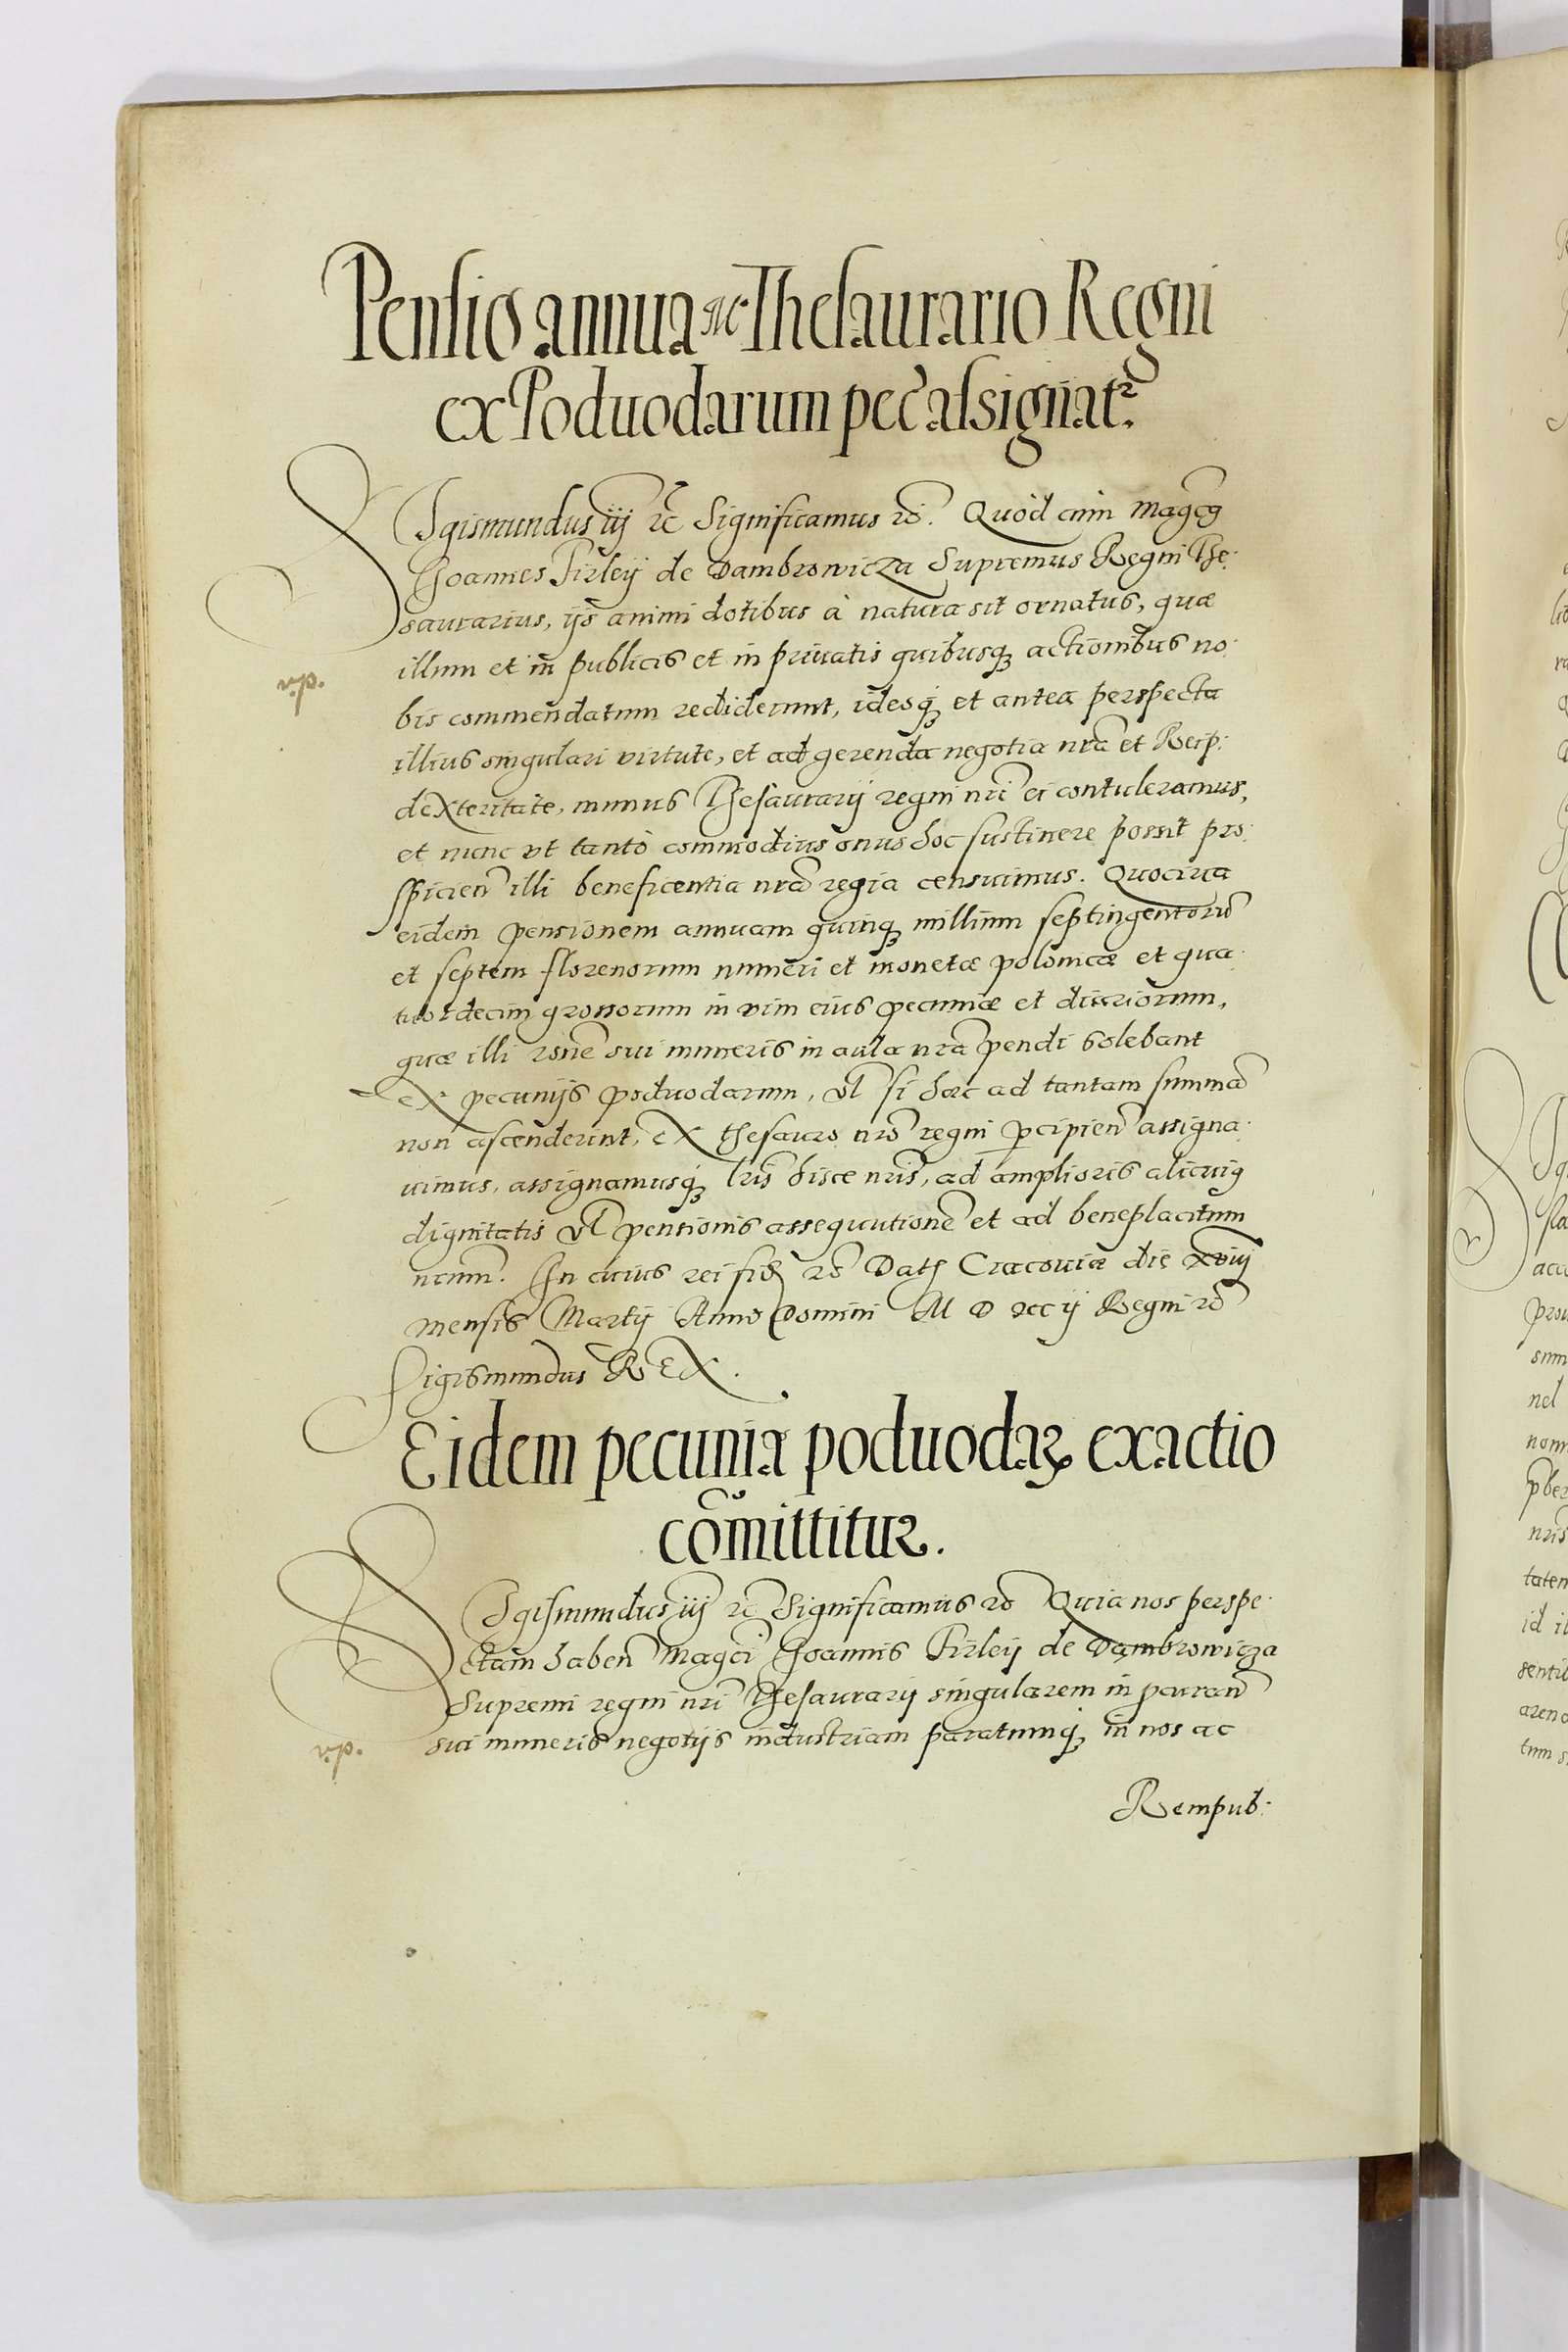 Pensio annua Mco Thesaurario Regni
ex Poduodarum pec̃ assignatr.
Sigismundus iij rc̃ Significamus rc̃. Quòd cum Magcꝯ
Joannes Firleÿ de Dambrowicza Supremus Regni The
saurarius, ijs animi dotibus à natura sit ornatus, quæ
illum et in publicis et in priuatis quibusq; actionibus no
bis commendatum rediderunt, ideoq; et antea perspecta
illius singulari virtute, et ad gerenda negotia nr̃a et Reip:
dexteritate, munus Thesaurarij regni nr̃i ei contuleramus,
et nunc vt tantò commodius onus hoc sustinere possit pro
spicien̄ illi beneficentia nr̃a regia censuimus. Quocirca
eidem pensionem annuam quinq; millium septingentorũ
et septem florenorum numeri et monetæ polonicæ et qua
tuordecim grossorum in vim eius pecuniæ et
quæ illi rõne sui muneris in aula nr̃a pendi solebant
ex pecunijs poduodarum, vl̃ si hæc ad tantam summã
non ascenderint, ex thesauro nr̃o regni ꝑcipien̄ assigna
uimus, assignamusq; lr̃is hisce nr̃is, ad amplioris alicuiꝯ
dignitatis vl̃ pensionis assequutionẽ et ad beneplacitum
nr̃um. In cuius rei fid̃ rc̃ Dat Cracoviæ die xviij
mensis Martij Anno Domini M D xc ij Regni rc̃
Sigismundus REX.
Eidem pecuniæ poduodaꝝ exactio
com̃ittitur.
Sigismundus iij rc̃ Significamus rc̃ Quia nos perspe
ctam haben̄ Magci Joannis Firleij de Dambrowicza
Supremi regni nr̃i Thesaurarij singularem in ꝓcuran̄
sui muneris negotijs industriam paratumq; in nos ac
Rempub:
v.p.
v.p.